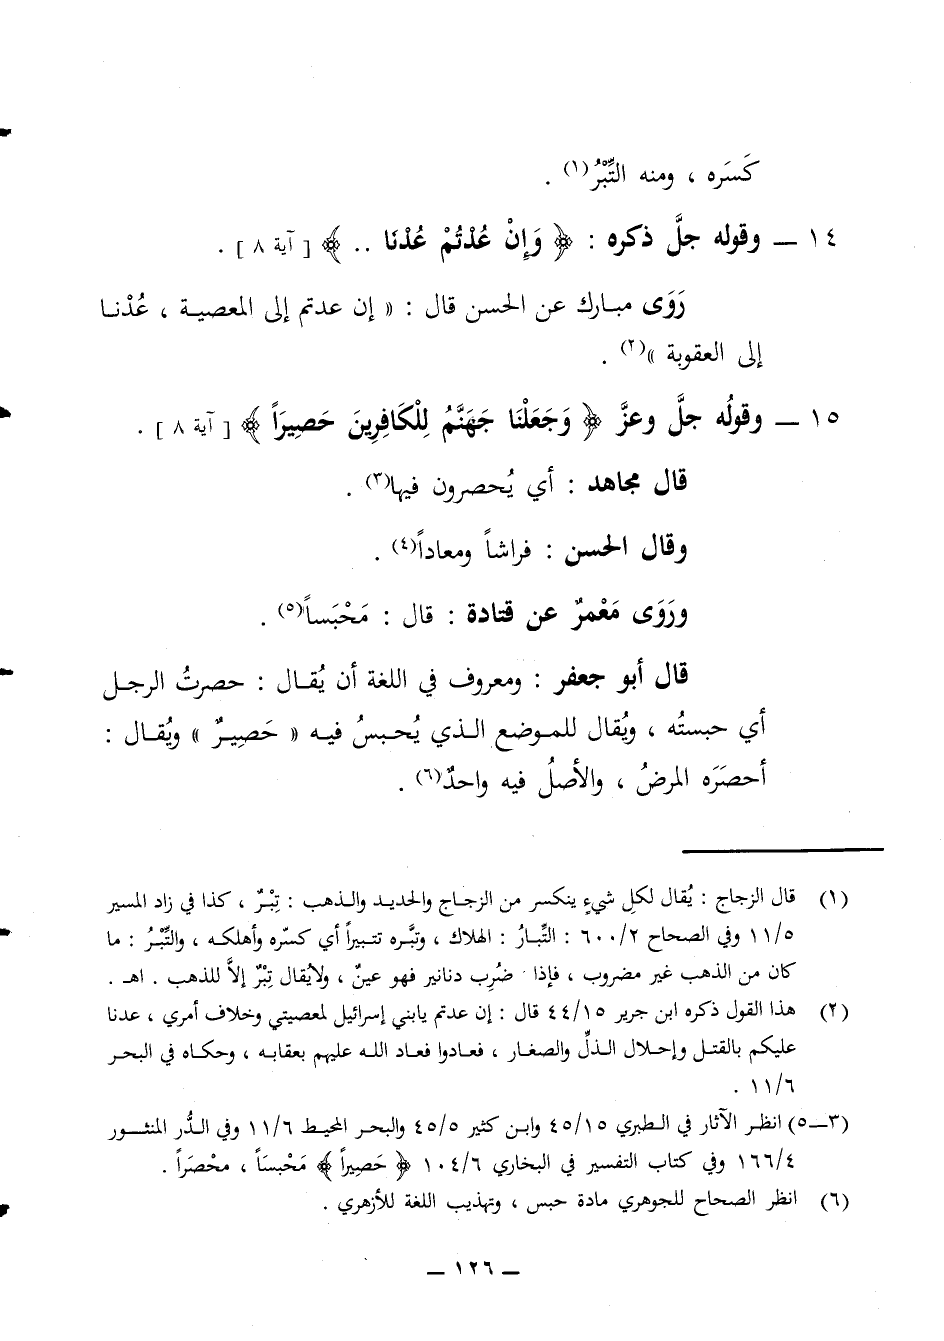 كَسَره ، ومنه التِّبْرُ(١) .
١٤ ــ وقوله جلَّ ذكره : ﴿ وَإِنْ عُدْتُمْ عُدْنَا .. ﴾ [ آية ٨ ] .
رَوَى مبارك عن الحسن قال : « إن عدتم إلى المعصية ، عُدْنا
إلى العقوبة »(٢) .
١٥ ــ وقولُه جلَّ وعزَّ ﴿ وَجَعَلْنَا جَهَنَّمَ لِلْكَافِرِينَ حَصِيرَاً ﴾ [ آية ٨ ] .
قال مجاهد : أي يُحصرون فيها(٣) .
وقال الحسن : فراشاً ومعاداً(٤) .
ورَوَى مَعْمرٌ عن قتادة : قال : مَحْبَساً(٥) .
قال أبو جعفر : ومعروف في اللغة أن يُقال : حصرتُ الرجل
أي حبستُه ، ويُقال للموضع الذي يُحبسُ فيه « حَصِيرٌ » ويُقال :
أحصَرَه المرضُ ، والأصلُ فيه واحدٌ(٦) .
(١) قال الزجاج : يُقال لكلِ شيءٍ ينكسر من الزجاج والحديد والذهب : تِبْرٌ ، كذا في زاد المسير
١١/٥ وفي الصحاح ٦٠٠/٢ : التَّبارُ : الهلاك ، وتبَّره تتبيراً أي كسَّره وأهلكه ، والتِّبْرُ : ما
كان من الذهب غير مضروب ، فإذا ضُرِب دنانير فهو عينٌ ، ولايُقال تِبْرٌ إلاَّ للذهب . اهـ .
(٢) هذا القول ذكره ابن جرير ٤٤/١٥ قال : إن عدتم يابني إسرائيل لمعصيتي وخلاف أمري ، عدنا
عليكم بالقتل وإحلال الذلِّ والصغار ، فعادوا فعاد الله عليهم بعقابه ، وحكاه في البحر
١١/٦ .
(٣ــ٥) انظر الآثار في الطبري ٤٥/١٥ وابن كثير ٤٥/٥ والبحر المحيط ١١/٦ وفي الدُّر المنثور
١٦٦/٤ وفي كتاب التفسير في البخاري ١٠٤/٦ ﴿ حَصِيراً ﴾ مَحْبسَاً ، محْصَراً .
(٦) انظر الصحاح للجوهري مادة حبس ، وتهذيب اللغة للأزهري .
ــ ١٢٦ ــ